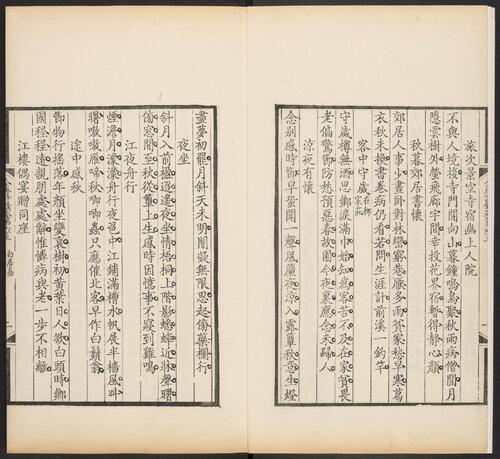 旅次景空寺宿幽上人院
不與人境接寺門開向山暮鐘鳴鳥聚秋雨病僧閒月
隱雲樹外螢飛廊宇間幸投花界宿暫得靜心顏
秋暮郊居書懷
郊居人事少晝臥對林巒窮巷厭多雨貧家愁早寒葛
衣秋未換書卷病仍看若問生涯計前溪一釣竿
客中守歲在柳家莊
守歲樽無酒思鄉淚滿巾始知為客苦不及在家貧畏
老偏驚節防愁預惡春故園今夜裏應念未歸人
涼夜有懷
念別感時節早蛩聞一聲風簾夜涼入露簟秋意生燈
盡夢初罷月斜天未明闇凝無限思起傍藥欄行
夜坐
斜月入前楹迢迢夜坐情梧桐上階影蟋蟀近牀聲曙
傍窗間至秋從簟上生感時因憶事不寢到雞鳴
江夜舟行
煙澹月濛濛舟行夜色中江鋪滿槽水帆展半檣風叫
曙嗷嗷雁啼秋唧唧蟲只應催北客早作白鬚翁
途中感秋
節物行搖落年顏坐變衰樹初黃葉日人欲白頭時鄉
國程程遠親朋處處辭惟憐病與老一步不相離
江樓偶宴贈同座
白居易